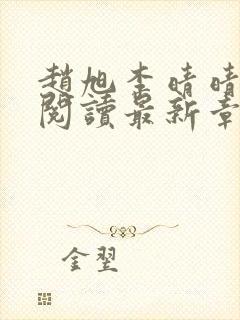 趙旭李晴晴
閱讀最新章
金翌